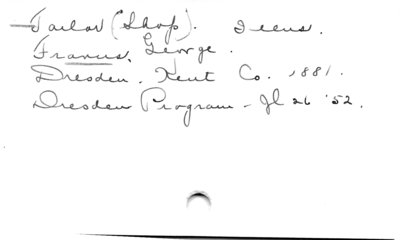 Tailor (Shop).
George.
Dresden. Kent Co. 1881.
Dresden Program - Jl 26 '52.